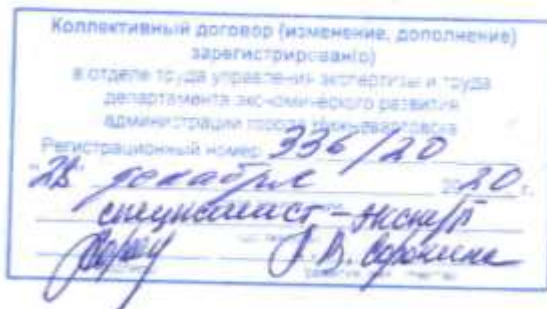 Коллективный договор (изменение, дополнение)
зарегистрирован(о)
в отделе труда управления экспертизы и труда
департамента экономического развития
администрации города Нижневартовска
Регистрационный номер 336/20
"28" декабря 2020 г.
специалист-эксперт
В.